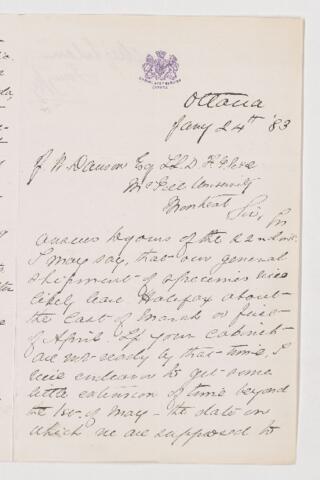 Ottawa
Jany 24th '83
J W Dawson Esq LLD
McGill University
Montreal
Sir, In
answer to yours of the 22nd inst.
I may say, that our general
shipment of specimens will
likely leave Halifax about
the last of March or first
of April. If your cabinets
are not ready by that time, I
will endeavor to get some
little extension of time beyond
the 1st of May – the date on
which we are supposed to